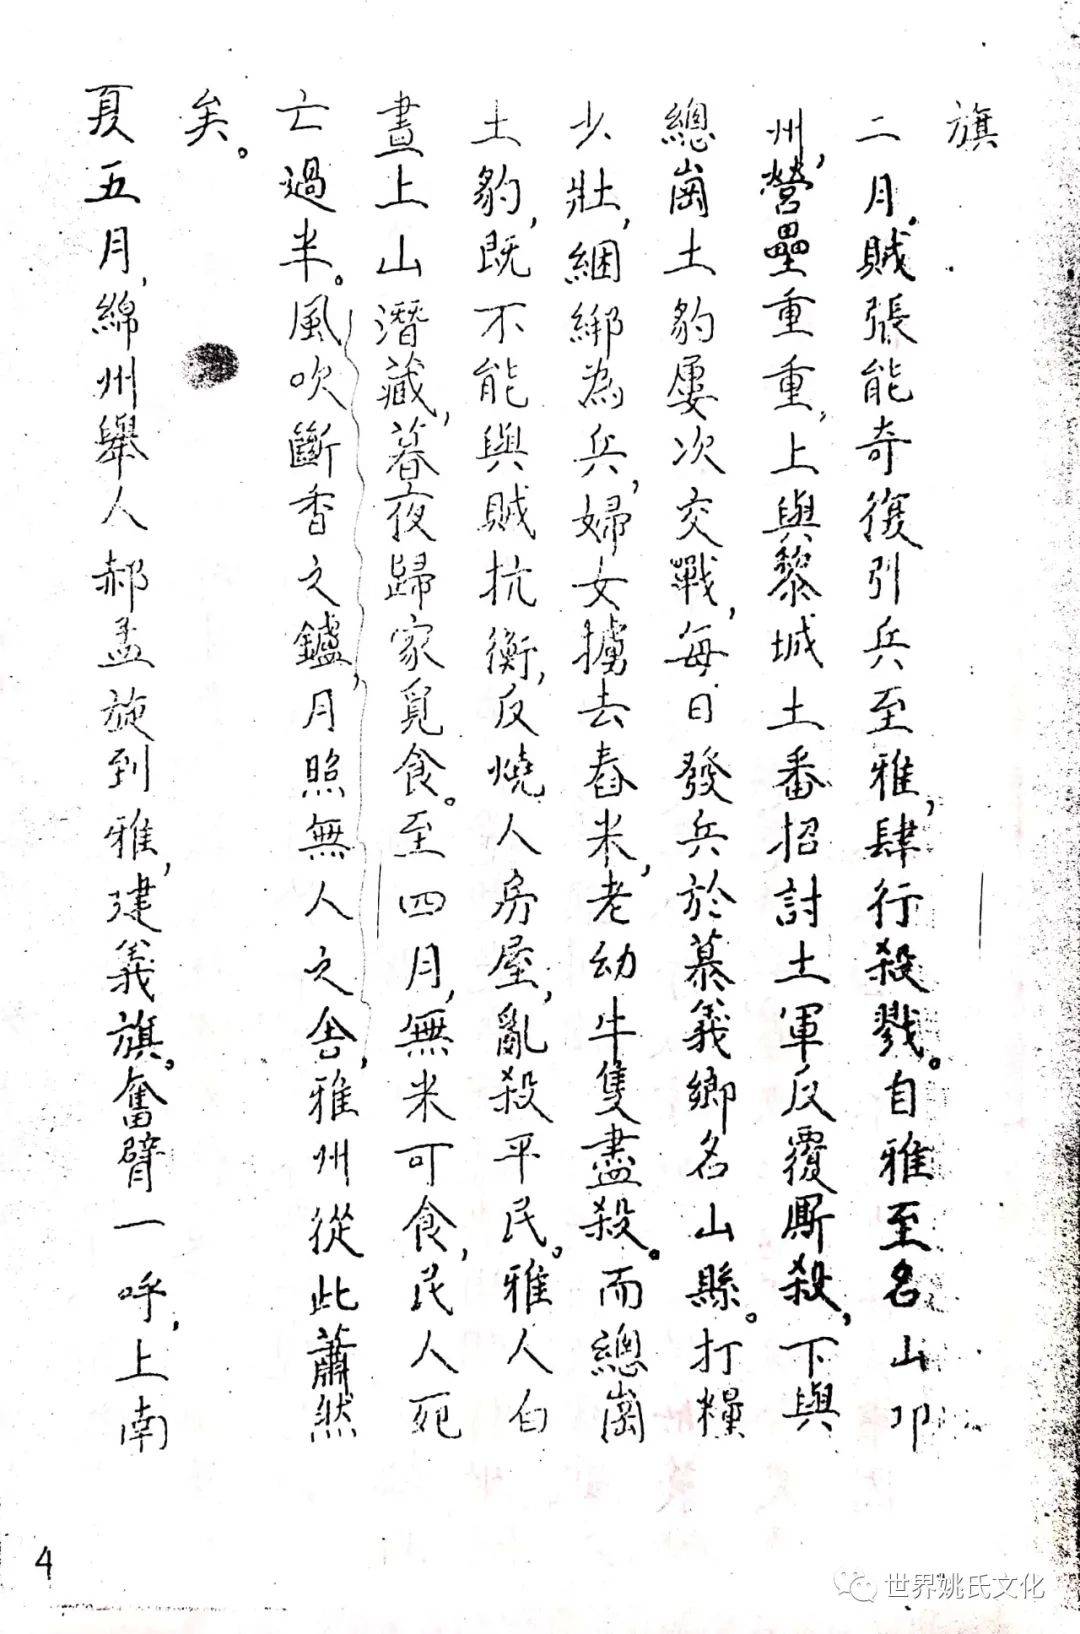 旗
二月，賊張能奇復引兵至雅，肆行殺戮。自雅至名山邛
州，營壘重重，上與黎城土番招討土軍反覆厮殺，下與
總崗土豹屢次交戰，每日發兵於慕義鄉名山縣。打糧
少壯，綑綁為兵，婦女擄去舂米，老幼牛隻盡殺。而總崗
土豹，既不能與賊抗衡，反燒人房屋，亂殺平民。雅人白
晝上山潛藏，暮夜歸家覓食。至四月，無米可食，民人死
亡過半。風吹斷香之鑪，月照無人之舍，雅州從此蕭然
矣。
夏五月，綿州舉人郝孟旋到雅，建義旗。奮臂一呼，上南
4
世界姚氏文化